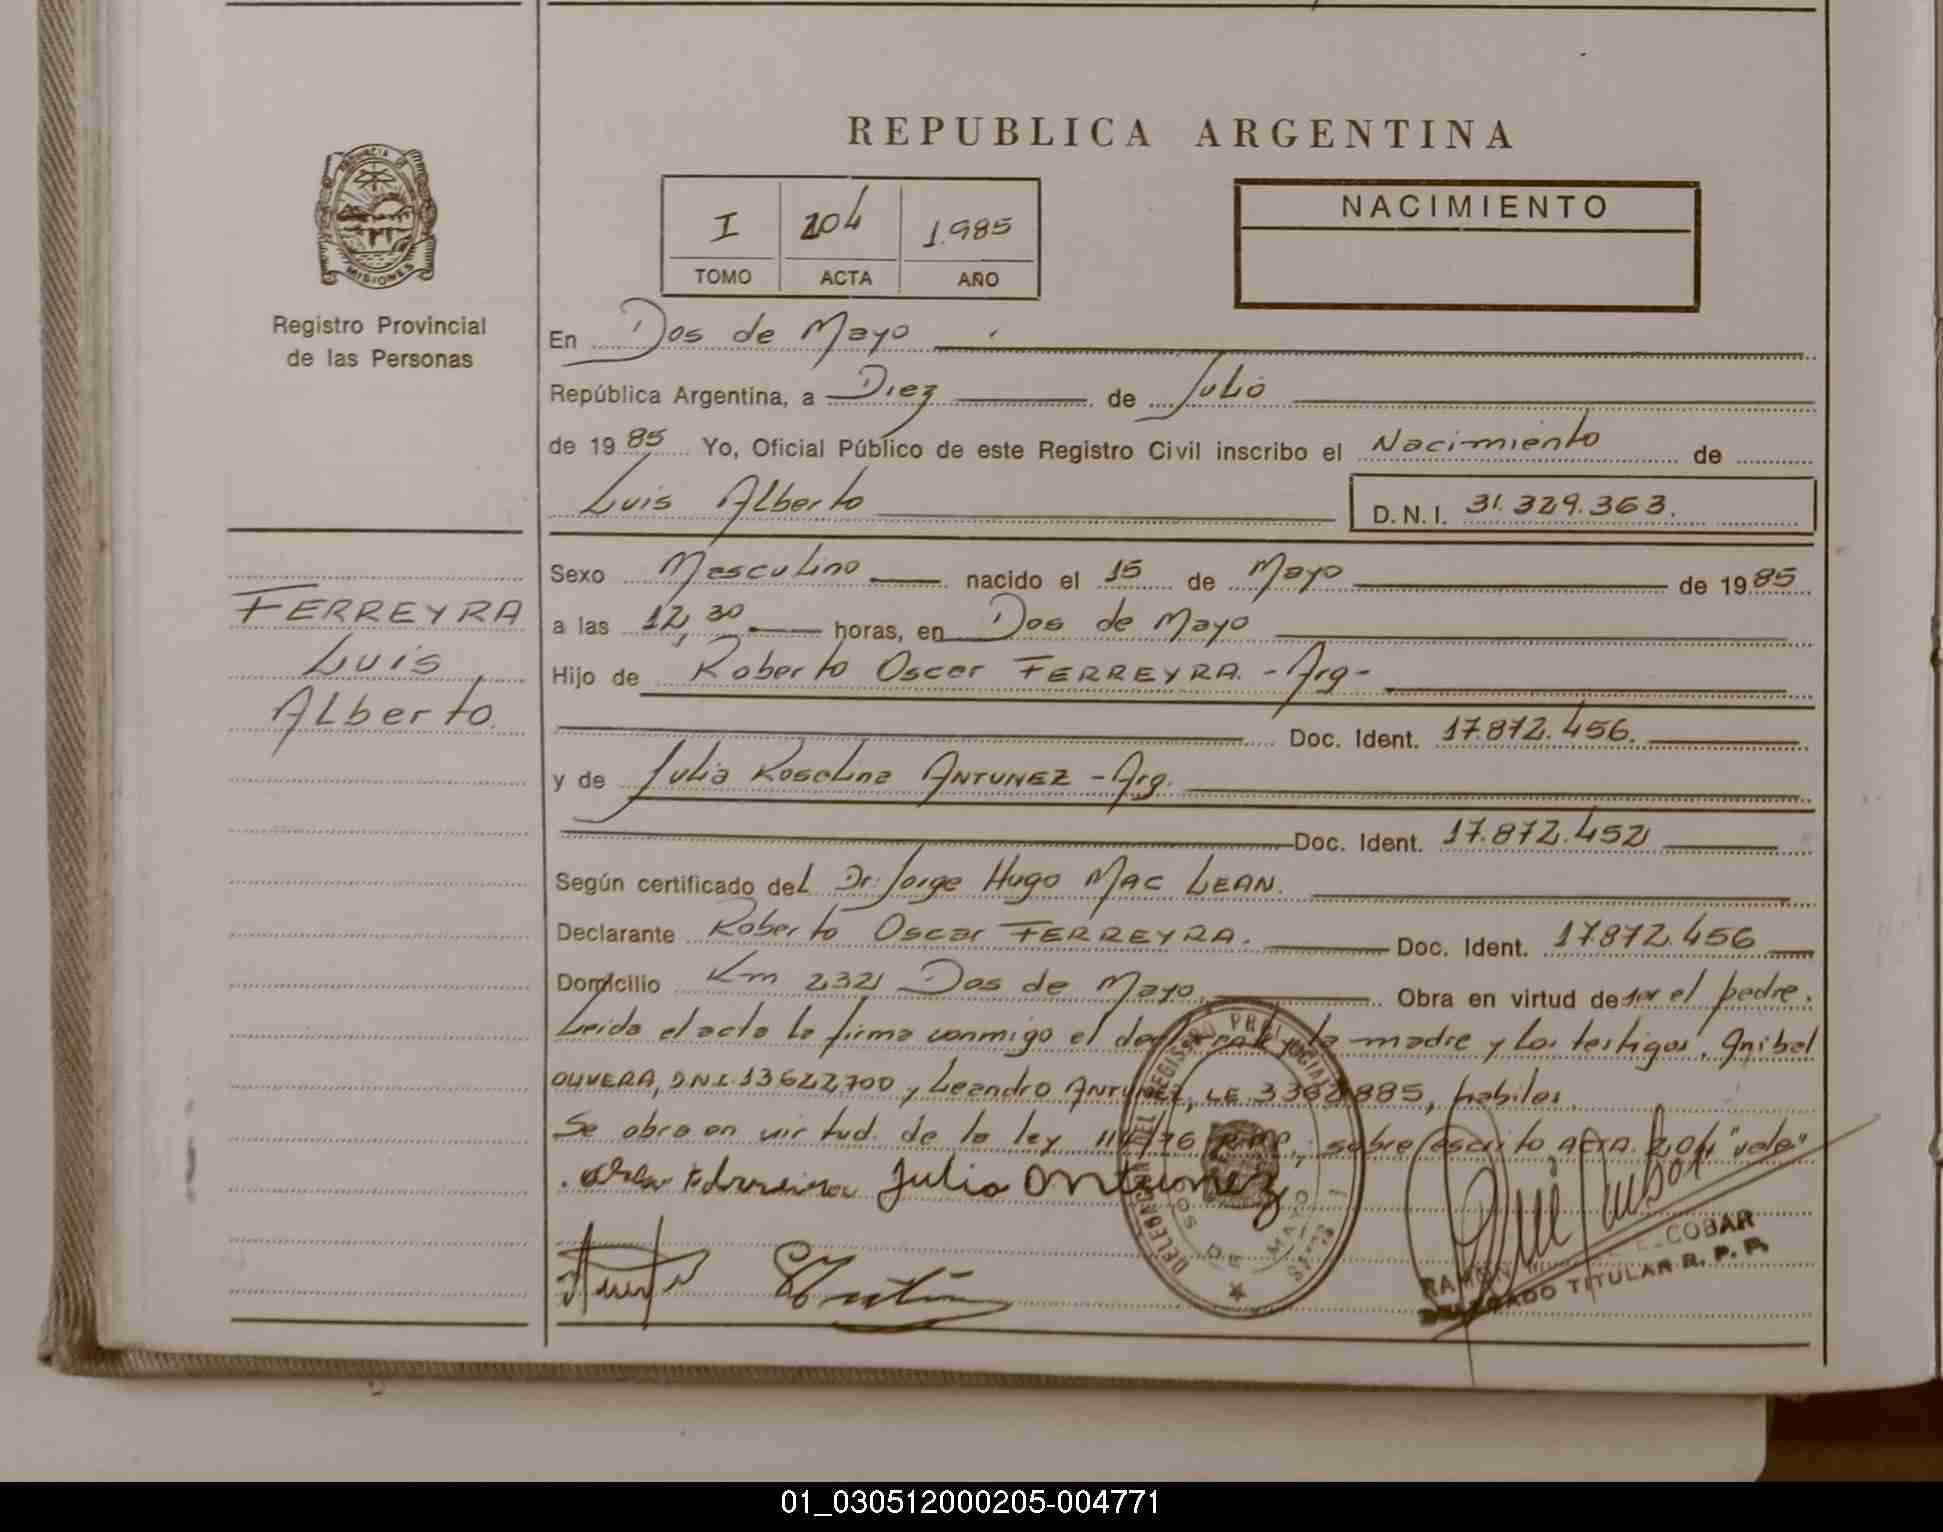 REPUBLICA ARGENTINA
PROVINCIA DE
MISIONES
Registro Provincial
de las Personas
I 204 1.985
TOMO ACTA AÑO
NACIMIENTO
En Dos de Mayo
República Argentina, a Diez de Julio
de 1985 Yo, Oficial Público de este Registro Civil inscribo el Nacimiento de
Luis Alberto D.N.I. 31.329.363.
FERREYRA
Luis
Alberto.
Sexo Masculino nacido el 15 de Mayo de 1985
a las 12,30 horas, en Dos de Mayo
Hijo de Roberto Oscar FERREYRA. - Arg -
Doc. Ident. 17.872.456.
y de Julia Roselina ANTUNEZ - Arg.
Doc. Ident. 17.872.452
Según certificado del Dr. Jorge Hugo MAC LEAN.
Declarante Roberto Oscar FERREYRA. Doc. Ident. 17.872.456
Domicilio Km 232 Dos de Mayo. Obra en virtud de ser el padre.
Leida el acta la firma conmigo el declarante y la madre y los testigos, Anibal
OLIVERA, D.N.I. 13622700 y Leandro ANTUNEZ, LE. 885, habiles.
Se obra en virtud de la ley sobre escrito ACTA. 204 "vale"
Julia Antunez
DELEGACION DEL REGISTRO PROVINCIAL
DOS DE MAYO
RAMON ESCOBAR
DELEGADO TITULAR R. P. P.
01_030512000205-004771